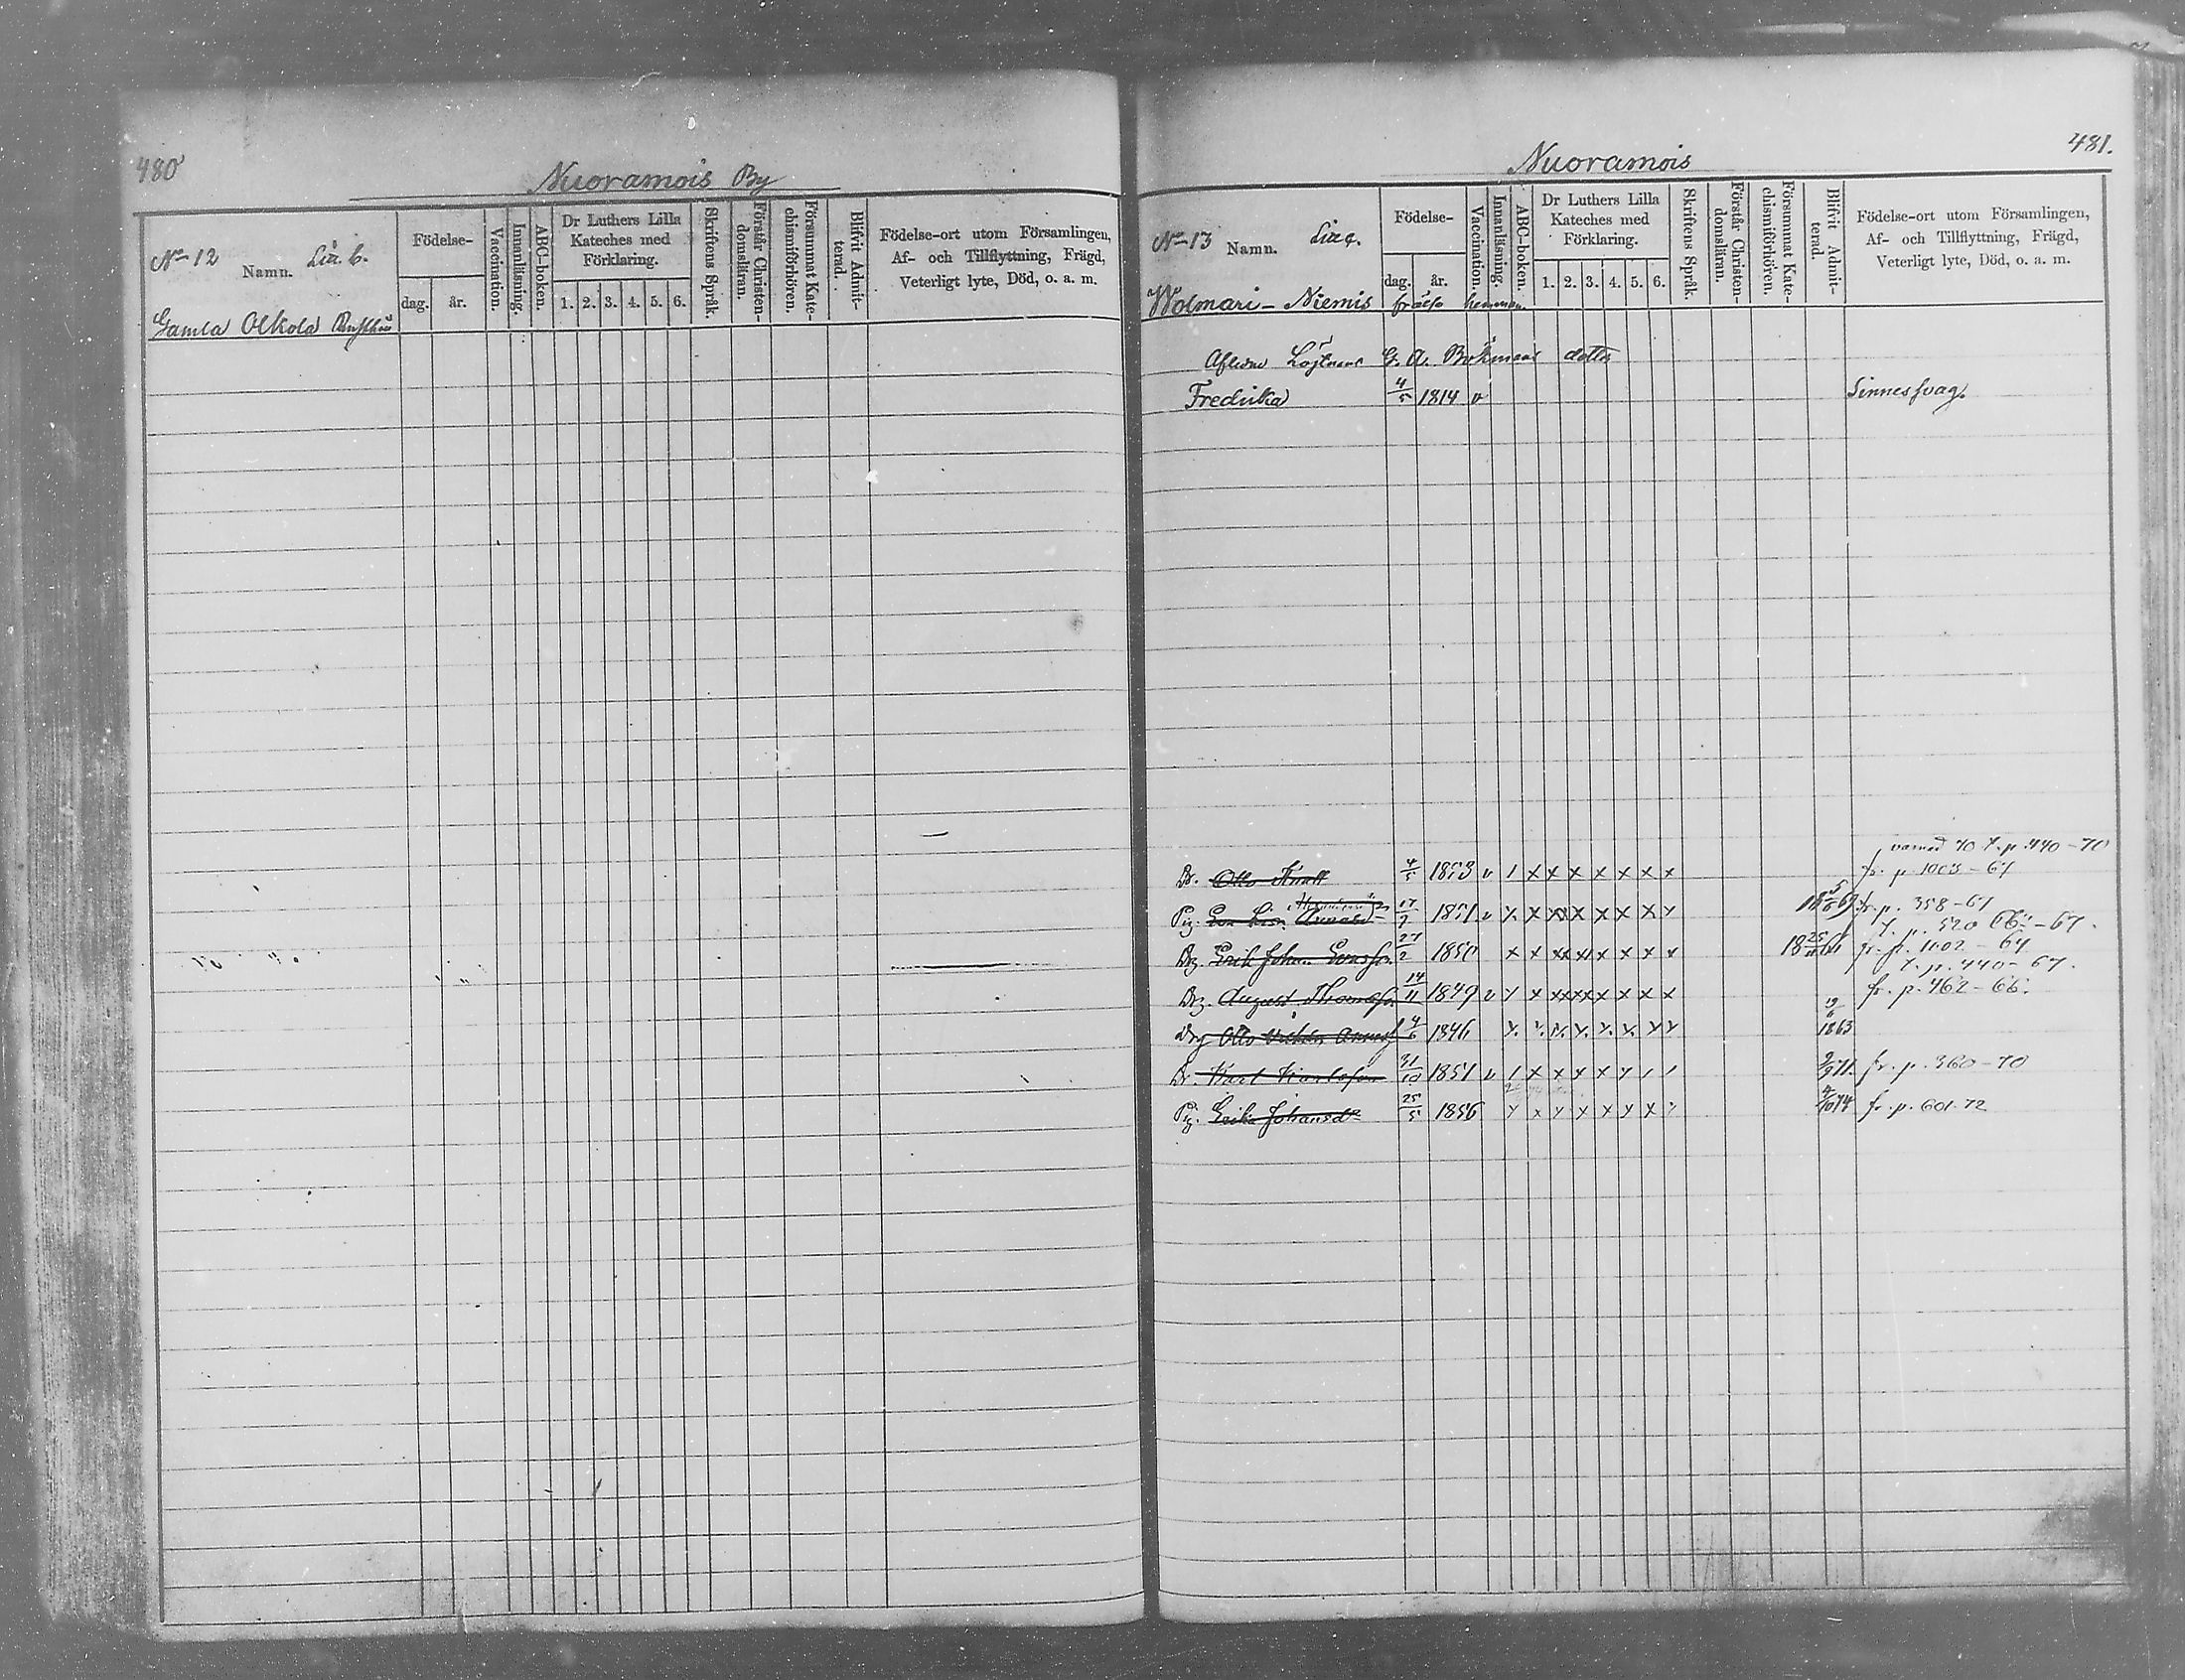 480
Nuoramois By
No 12
Namn.
Litt. b.
Födelse-
dag. år.
Vaccination.
Innanläsning.
ABC-boken.
Dr Luthers Lilla
Kateches med
Förklaring.
1. 2. 3. 4. 5. 6.
Skriftens Språk.
Förstår Christen-
domsläran.
Försummat Kate-
chismiförhören.
Blifvit Admit-
terad.
Födelse-ort utom Församlingen,
Af- och Tillflyttning, Frägd,
Veterligt lyte, Död, o. a. m.
Gamla Olkola
481.
Nuoramois
No 13 Namn.
Födelse-
dag. år.
Vaccination.
Innanläsning.
ABC-boken.
Dr Luthers Lilla
Kateches med
Förklaring.
1. 2. 3. 4. 5. 6.
Skriftens Språk.
Förstår Christen-
domsläran.
Försummat Kate-
chismiförhören.
Blifvit Admit-
terad.
Födelse-ort utom Församlingen,
Af- och Tillflyttning, Frägd,
Veterligt lyte, Död, o. a. m.
Wolmari-Niemis frälse hemman
Aflidne Löjtnant G. A. Brokmans dotter
Fredrika 4/5 1814 v Sinnessvag.
t. p. 440-70
Dr. Otto Knall 4/5 1853 v / x x x x x x x fr. p. 1003-67
Pig. 17/7 1851 v x x x x x x x x 69 fr. p. 358-67
t. p. 520 -67.
Drg. Erik Johan 27/2 1850 x x x x x x x x fr. p. 1002-67
t. p. 440-67.
Drg. August Thomass. 14/11 1849 v x x x x x x x x fr. p. 462-66.
Drg Otto 4/6 1846 x x x x x x x x 19/6 1863
Dr. Karl Karlsson 31/10 1851 v / x x x x x / / 71. fr. p. 360-70
Pig. Erika Johansdr 25/5 1856 x x x x x x x x 74 fr. p. 601.72